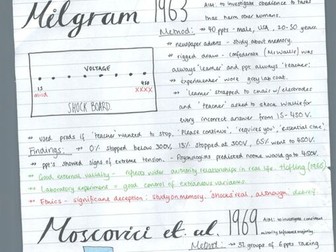 Milgram 1963
AIM: to investigate obedience to
harm other humans.
Method: → 40 ppts - male, USA, 20-50 years
→ newspaper adverts - study about memory.
→ rigged draw - confederate (Mr Wallace) was
always 'learner' and ppt always 'teacher'.
→ experimenter wore grey lab coat.
→ 'learner' strapped to chair w/ electrodes
and 'teacher' asked to shock for
every incorrect answer from 15 - 450 V.
VOLTAGE
15
450
mild
XXXX
SHOCK BOARD
→ used prods if 'teacher' wanted to stop. 'Please continue', 'requires you', 'essential
Findings: → 0% stopped below 300V, 15% stopped at 300V, 65% went to 450V.
→ ppts showed signs of extreme tension. → predicted none would go to 450V.
→ Good external validity - reflects wider authority relationships in real life. Hofling (1966)
→ Laboratory experiment → good control of extraneous variables
→ Ethics - significant deception: study on memory. 'shocks' real, although, 
Moscovici et al. 1969
AIM: to investigate
minority influence majority.
Method: → 32 groups of 6 ppts